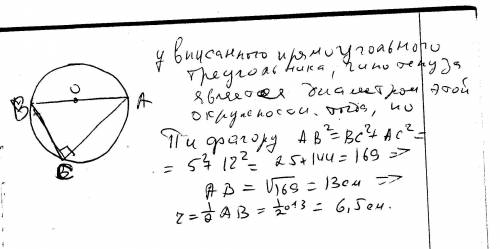 О
В
А
С
у вписанного прямоугольного
треугольника, гипотенуза
является диаметром этой
окружности. по
Пифагору AB²=BC²+AC²=
= 5²+12²= 25+144=169 =>
AB = √169 = 13см =>
r = ½ AB = ½·13 = 6,5см.